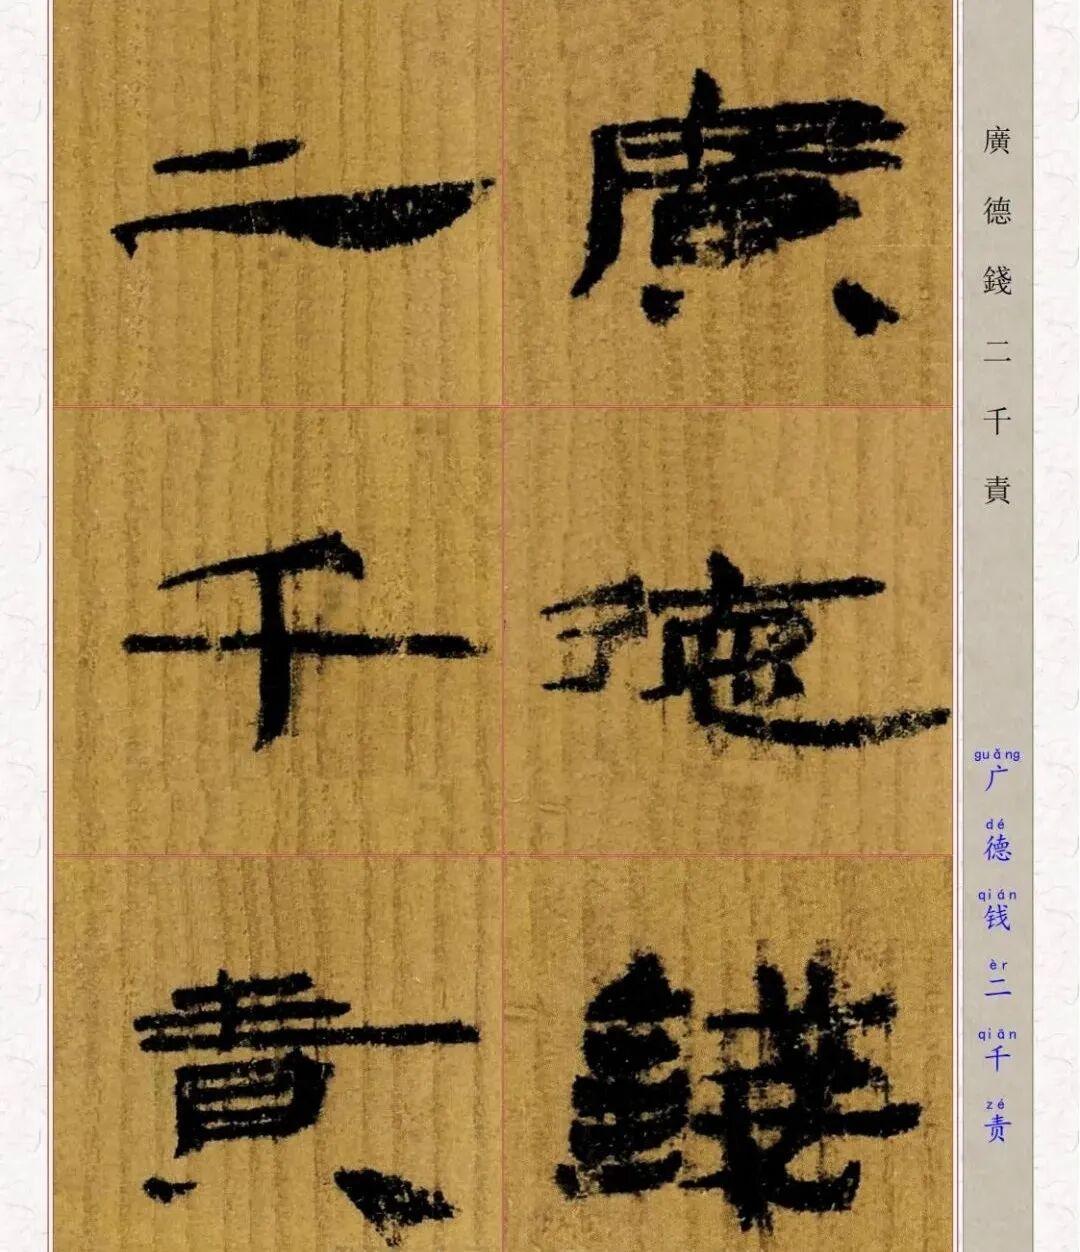 廣德錢
二千責
廣德錢二千責
guǎng dé qián èr qiān zé
广德钱二千责